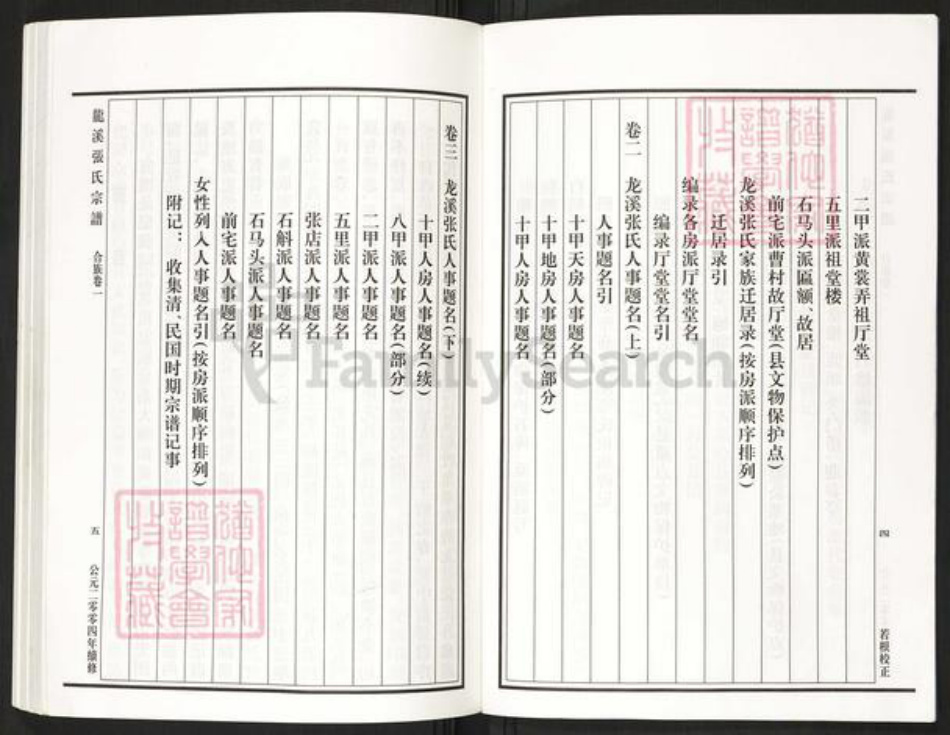 二甲派黄裳弄祖厅堂
五里派祖堂楼
石马头派匾额、故居
前宅派曹村故厅堂(县文物保护点)
龙溪张氏家族迁居录(按房派顺序排列)
迁居录引
编录各房派厅堂堂名
编录厅堂堂名引
卷二 龙溪张氏人事题名(上)
人事题名引
十甲天房人事题名
十甲地房人事题名(部分)
十甲人房人事题名
四
若根校正
卷三 龙溪张氏人事题名(下)
十甲人房人事题名(续)
八甲派人事题名(部分)
二甲派人事题名
五里派人事题名
张店派人事题名
石斛派人事题名
石马头派人事题名
前宅派人事题名
女性列入人事题名引(按房派顺序排列)
附记: 收集清、民国时期宗谱记事
龍溪張氏宗譜 合族卷一
五
公元二零零四年续修
FamilySearch